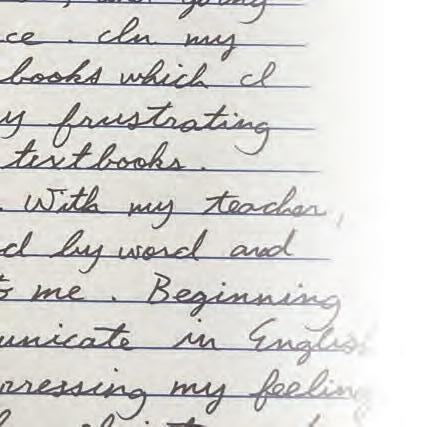 ce. In my
books which I
y frustrating
textbooks.
. With my teacher,
d by word and
me. Beginning
unicate in English
ressing my feeling